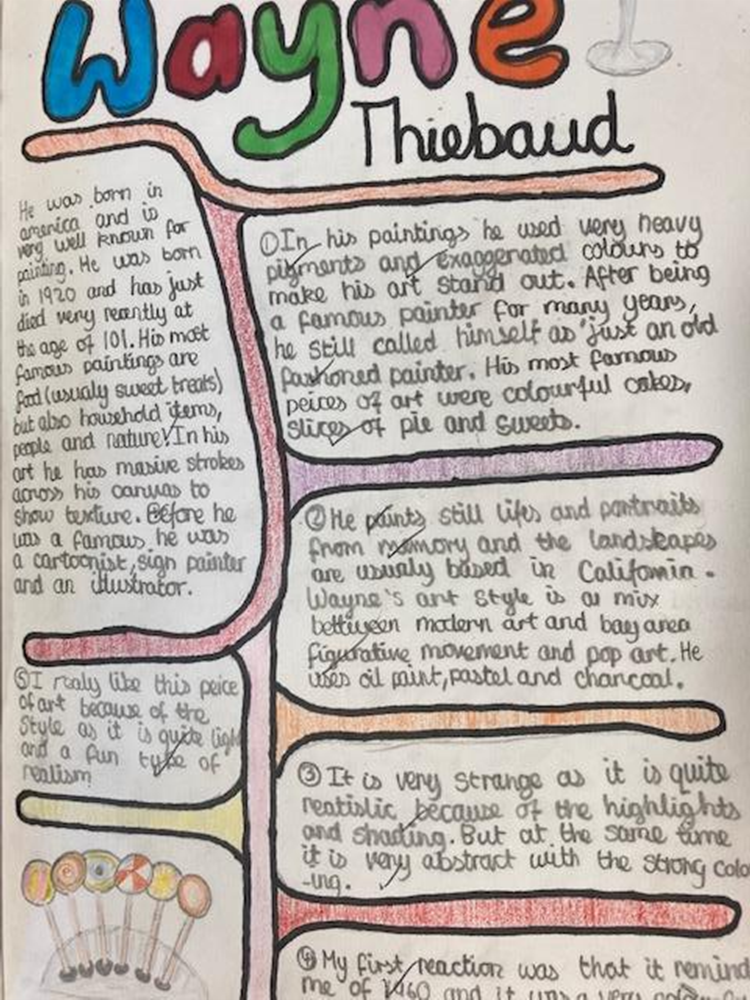 Wayne
Thiebaud
He was born in
america and is
very well known for
painting. He was born
in 1920 and has just
died very recently at
the age of 101. His most
famous paintings are
food (usualy sweet treats)
but also household items,
people and nature! In his
art he has masive strokes
across his canvas to
show texture. Before he
was a famous he was
a cartoonist, sign painter
and an illustrator.
①In his paintings he used very heavy
pigments and exaggerated colours to
make his art stand out. After being
a famous painter for many years,
he still called himself as 'just an old
fashoned painter. His most famous
peices of art were colourful cakes,
slices of pie and sweets.
②He paints still lifes and portraits
from memory and the landskapes
are usualy based in California.
Wayne's art style is a mix
between modern art and bay area
figurative movement and pop art. He
uses oil paint, pastel and charcoal.
③It is very strange as it is quite
realistic because of the highlights
and shading. But at the same time
it is very abstract with the strong colo
-ing.
④My first reaction was that it remind
me of 1960 and it was a very
⑤I realy like this peice
of art because of the
style as it is quite light
and a fun type of
realism